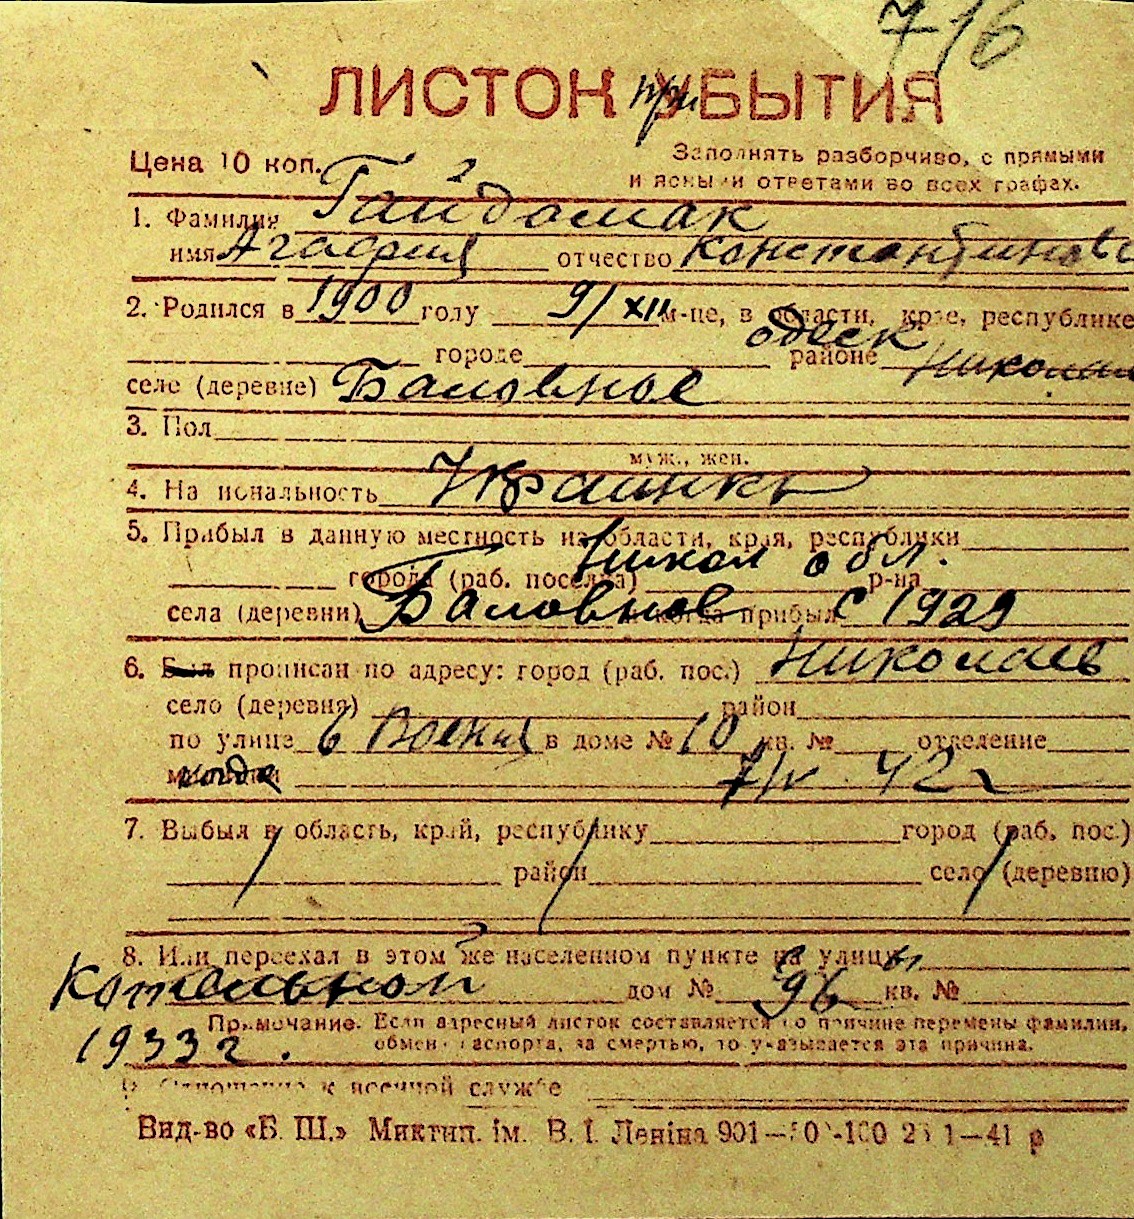 716
ЛИСТОК при УБЫТИЯ
Цена 10 коп.
Заполнять разборчиво, с прямыми
и ясными ответами во всех графах.
1. Фамилия Гайдамак
имя Агафия отчество Константинов
2. Родился в 1900 году 9/XII м-це, в области, крае, республике
одеск
городе районе Николаев
селе (деревне) Баловное
3. Пол
муж., жен.
4. Национальность Украинка
5. Прибыл в данную местность из области, края, республики
Никол обл.
города (раб. поселка) р-на
села (деревни) Баловное и когда прибыл с 1929
6. Был прописан по адресу: город (раб. пос.) Николаев
село (деревня) район
по улице 6 Военная в доме № 10 кв. № отделение
милиции
7. Выбыл в область, край, республику город (раб. пос.)
район село (деревню)
8. Или переехал в этом же населенном пункте на улицу
Котельной дом № 96 кв. №
1933 г.
Примечание. Если адресный листок составляется по причине перемены фамилии,
обмена паспорта, за смертью, то указывается эта причина.
9. Отношение к военной службе
Вид-во «Б. Ш.» Миктип. ім. В. І. Леніна 901